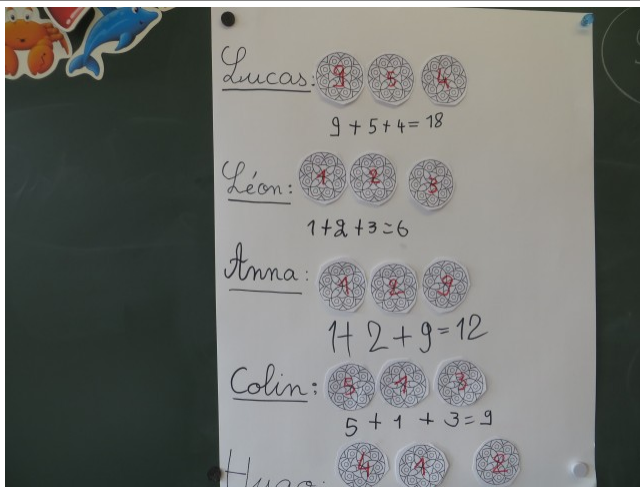 Lucas: 9 5 4
9 + 5 + 4 = 18
Léon: 1 2 3
1 + 2 + 3 = 6
Anna: 1 2 9
1 + 2 + 9 = 12
Colin: 5 1 3
5 + 1 + 3 = 9
Hugo: 4 1 2